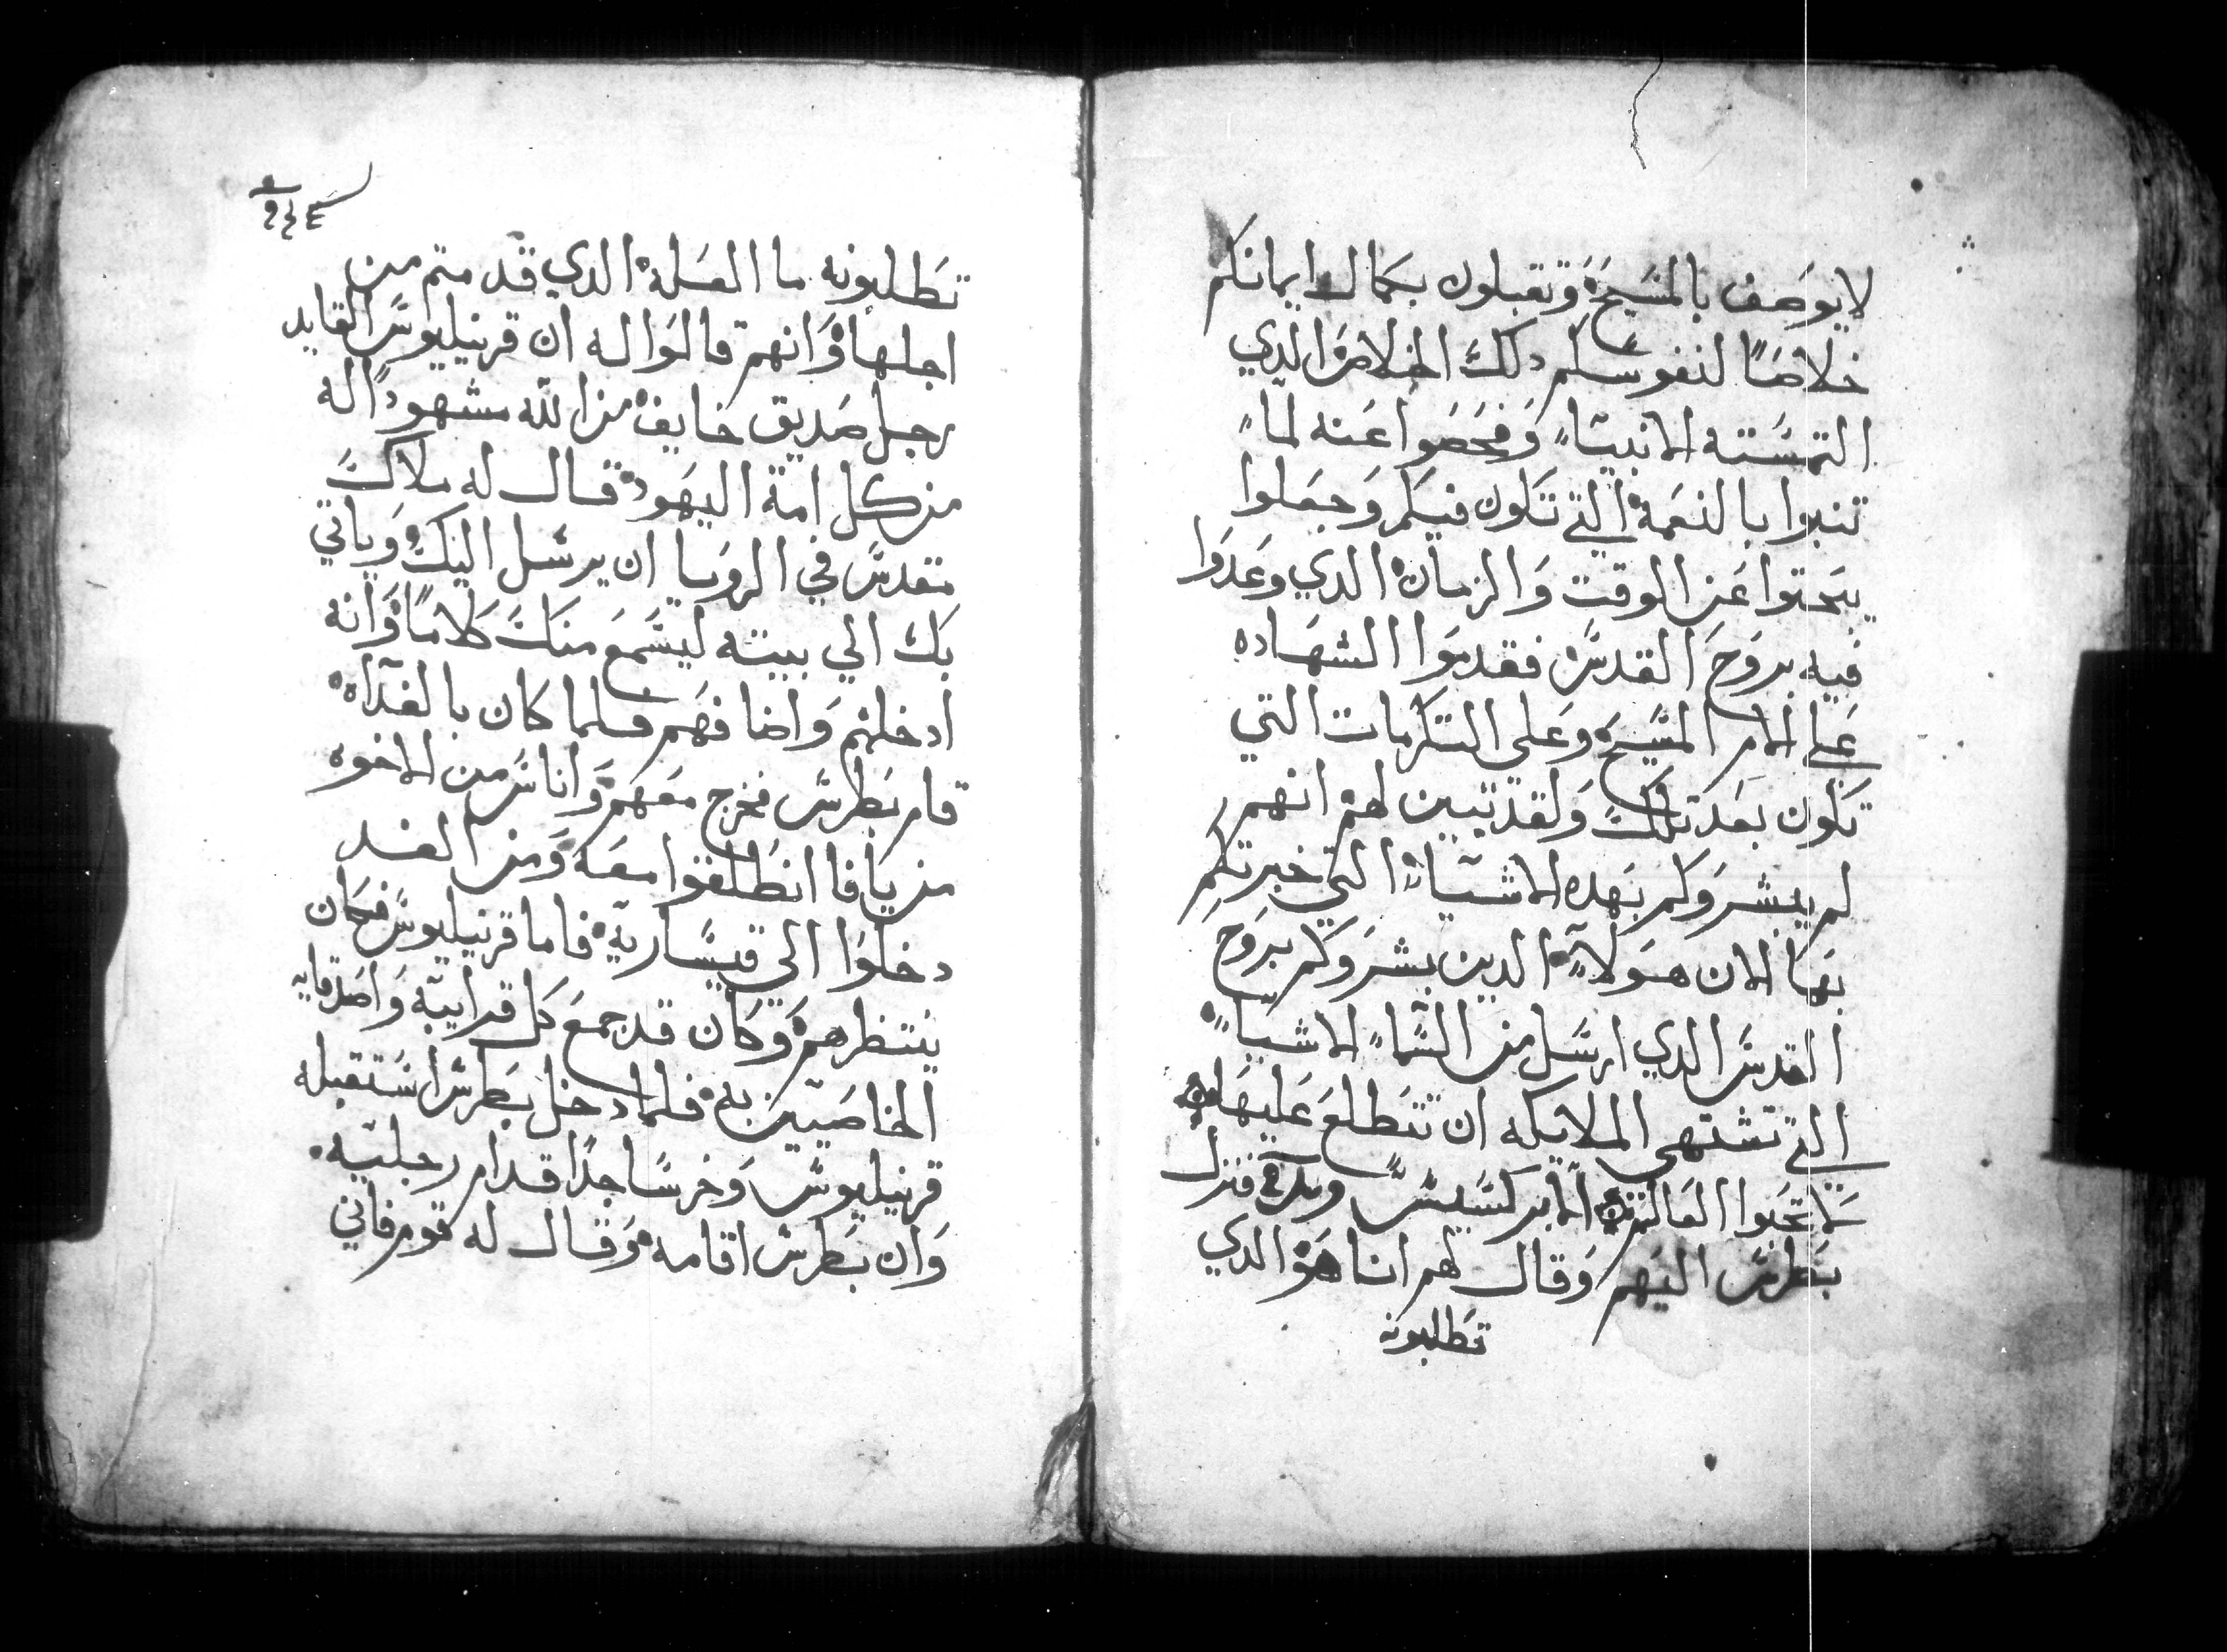 لا يوصف بالمسيح وتقبلون بكمال ايمانكم
خلاصًا لنفوسكم دلك الخلاص الدي
التمسته الانبيا وفحصوا عنه لما
تنبوا بالنعمة التي تكون فيكم وجعلوا
يبحتوا عن الوقت والزمان الدي وعدوا
فيه بروح القدس فقدموا الشهاده
على الام المسيح وعلى التكرمات التي
تكون بعد تلك ولقد تبين لهم انهم
لم يبشروكم بهده الاشيا التي خبرتكم
بها الان هولاء الدين بشروكم بروح
القدس الدي ارسل من السما الاشيا
التي تشتهي الملايكه ان تتطلع عليها
لا تحبوا العالم الابركسيس فنزل
بطرس اليهم وقال لهم انا هو الدي
تطلبونه
تطلبونه ما العله الدي قد متم من
اجلها وانهم قالوا له ان قرنيليوس القايد
رجل صديق خايف من الله مشهودًا له
من كل امة اليهود قال له ملاك
مقدس في الرويا ان يرسل اليك وياتي
بك الي بيته ليسمع منك كلامًا وانه
ادخلهم واضافهم فلما كان بالغداه
قام بطرس فخرج معهم واناس من الاخوه
من يافا انطلقوا معه ومن الغد
دخلوا الي قيساريه فاما قرنيليوس فكان
ينتظرهم وكان قد جمع كل قرايبه واصدقايه
الخاصيين به فلما دخل بطرس استقبله
قرنيليوس وخر ساجدًا قدام رجليه
وان بطرس اقامه وقال له قوم فاني